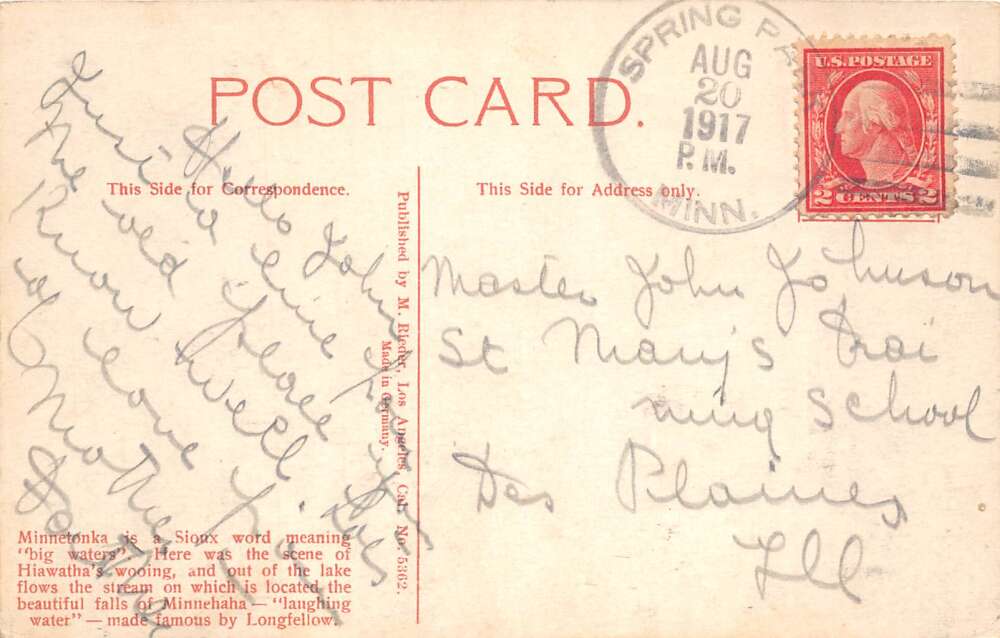 POST CARD.
This Side for Correspondence.
This Side for Address only.
SPRING PA
AUG
20
1917
P.M.
MINN.
U.S. POSTAGE
2 CENTS 2
Hello John
Just
the old place
know well.
love
Mother
Published by M. Rieder, Los Angeles, Cal. No. 5362.
Made in Germany.
Master John Johnson
St Mary's Trai
ning School
Des Plaines
Ill
Minnetonka is a Sioux word meaning
"big waters". Here was the scene of
Hiawatha's wooing, and out of the lake
flows the stream on which is located the
beautiful falls of Minnehaha — "laughing
water" — made famous by Longfellow.